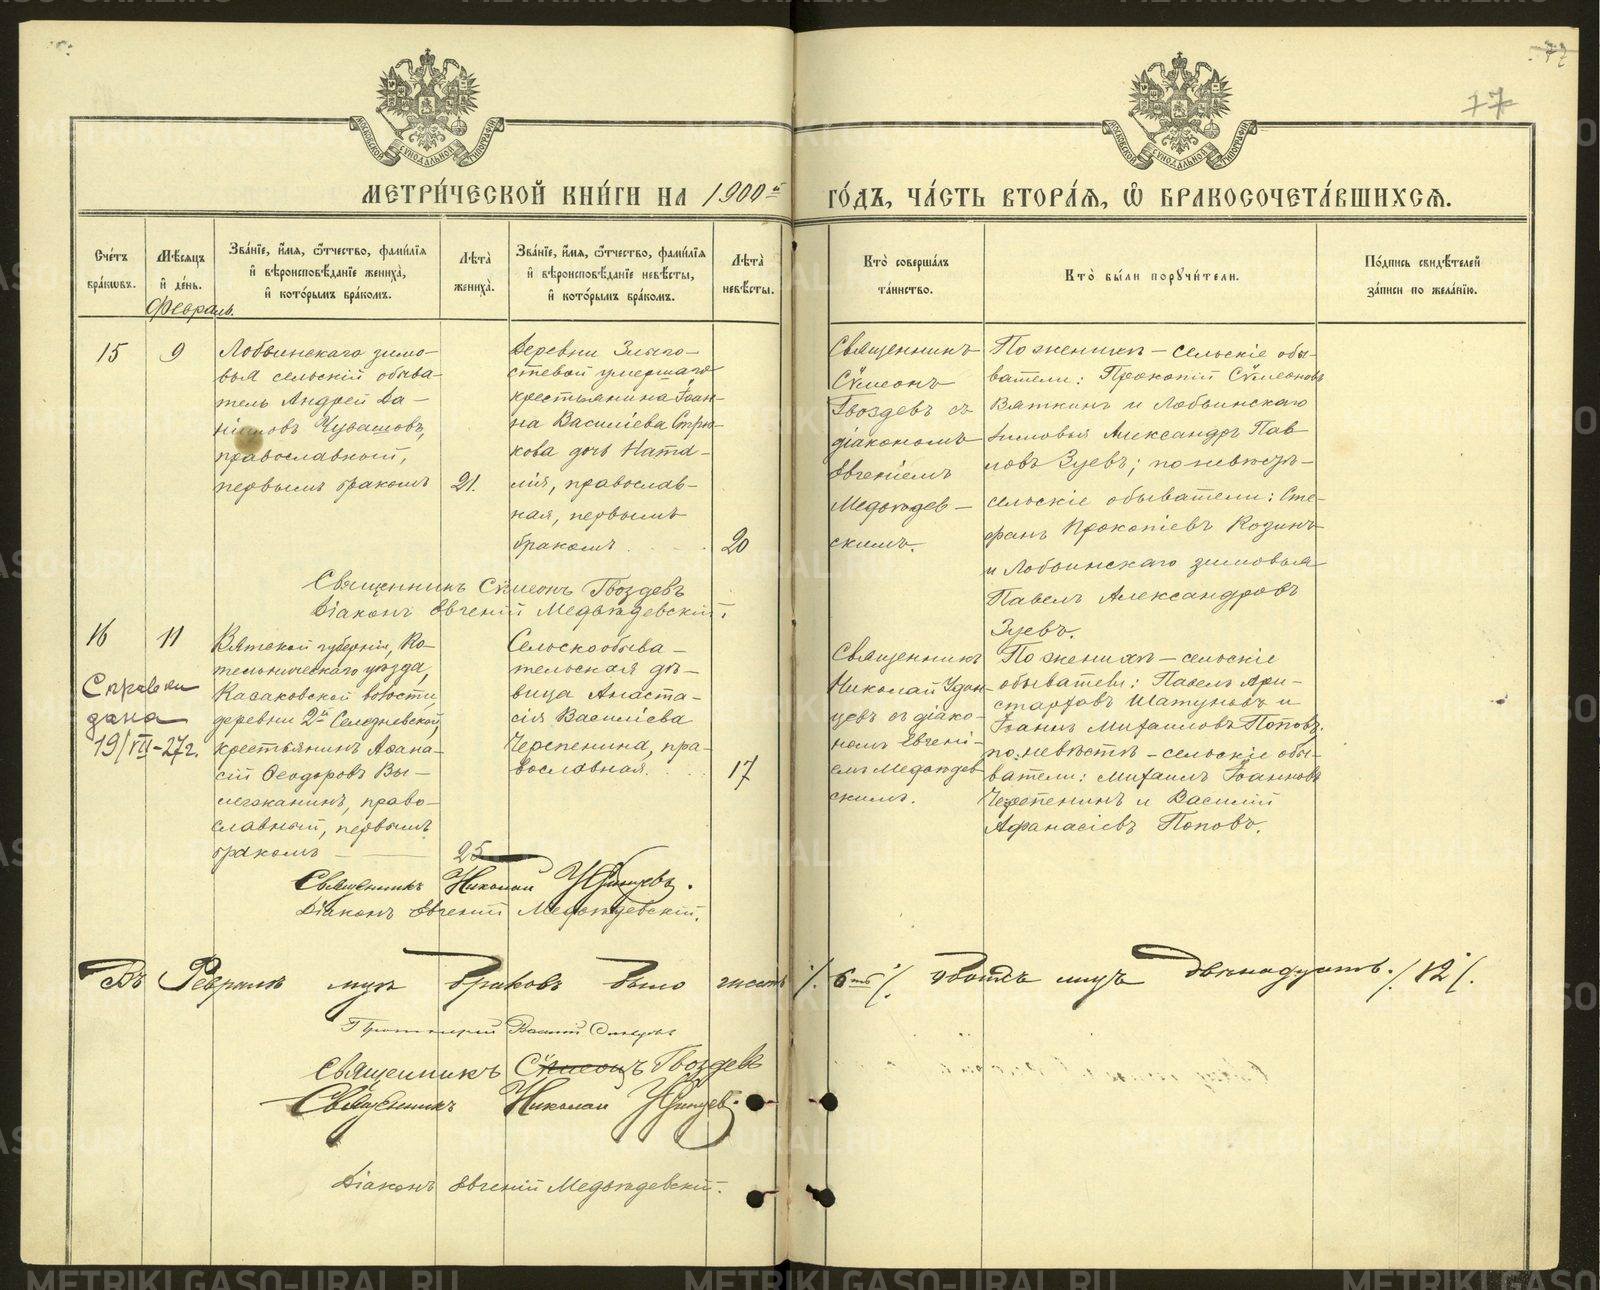 77
МЕТРИ́ЧЕСКОЙ КНИ́ГИ НА 1900й ГО́ДЪ, ЧА́СТЬ ВТОРА́Я, Ѿ БРАКОСОЧЕТА́ВШИХСЯ.
Сче́тъ бра́кѡвъ.
Мѣ́сяцъ и҆ де́нь.
Февраль.
Зва́нїе, и҆́мя, ѻ҆́тчество, фами́лїя
и҆ вѣроисповѣ́данїе жениха̀,
и҆ кото́рымъ бра́комъ.
Лѣ́та жениха̀.
Зва́нїе, и҆́мя, ѻ҆́тчество, фами́лїя
и҆ вѣроисповѣ́данїе невѣ́сты,
и҆ кото́рымъ бра́комъ.
Лѣ́та невѣ́сты.
Кто̀ соверша́лъ
та́инство.
Кто̀ бы́ли поручи́тели.
По́дпись свидѣ́телей
за́писи по жела́нїю.
15
9
Лобвинскаго зимо-
вья сельскій обыва-
тель Андрей Да-
ніиловъ Чувашовъ,
православный,
первымъ бракомъ
21.
Деревни Злыго-
стевой умершаго
крестьянина Іоан-
на Василіева Стрю-
кова дочь Ната-
лія, православ-
ная, первымъ
бракомъ
20
Священникъ
Сѵмеонъ
Гвоздевъ съ
діакономъ
Евгеніемъ
Медвѣдев-
скимъ.
По женихѣ – сельскіе обы-
ватели: Прокопій Сѵмеоновъ
Вяткинъ и Лобвинскаго
зимовья Александръ Пав
ловъ Зуевъ; по невѣстѣ-
сельскіе обыватели: Сте-
фанъ Прокопіевъ Козинъ
и Лобвинскаго зимовья
Павелъ Александровъ
Зуевъ.
Священникъ Сѵмеонъ Гвоздевъ
Діаконъ Евгеній Медвѣдевскій.
16
11
Справка
дана
19/VII-27г.
Вятской губерніи, Ко-
тельническаго уѣзда,
Казаковской волости,
деревни 2й Селезневской,
крестьянинъ Аѳана-
сій Ѳеодоровъ Вы-
легжанинъ, право-
славный, первымъ
бракомъ
25
Сельскообыва-
тельская дѣ-
вица Анаста-
сія Василіева
Черепенина, пра-
вославная.
17
Священникъ
Николай Удин-
цевъ съ діако-
номъ Евгені-
емъ Медвѣдев
скимъ.
По женихѣ – сельскіе
обыватели: Павелъ Ари-
старховъ Шатуновъ и
Іоаннъ Михаиловъ Поповъ.
по невѣстѣ – сельскіе обы-
ватели: Михаилъ Іоанновъ
Черепенинъ и Василій
Афанасіевъ Поповъ.
Священникъ Николай Удинцевъ.
Діаконъ Евгеній Медвѣдевскій.
Въ Февралѣ мцѣ браковъ было шесть ./. 6ть ./. обоихъ лицъ двенадцать ./. 12 /.
Протоіерей Василій
Священникъ Сѵмеонъ Гвоздевъ
Священникъ Николай Удинцевъ.
Діаконъ Евгеній Медвѣдевскій.
METRIKI.GASO-URAL.RU